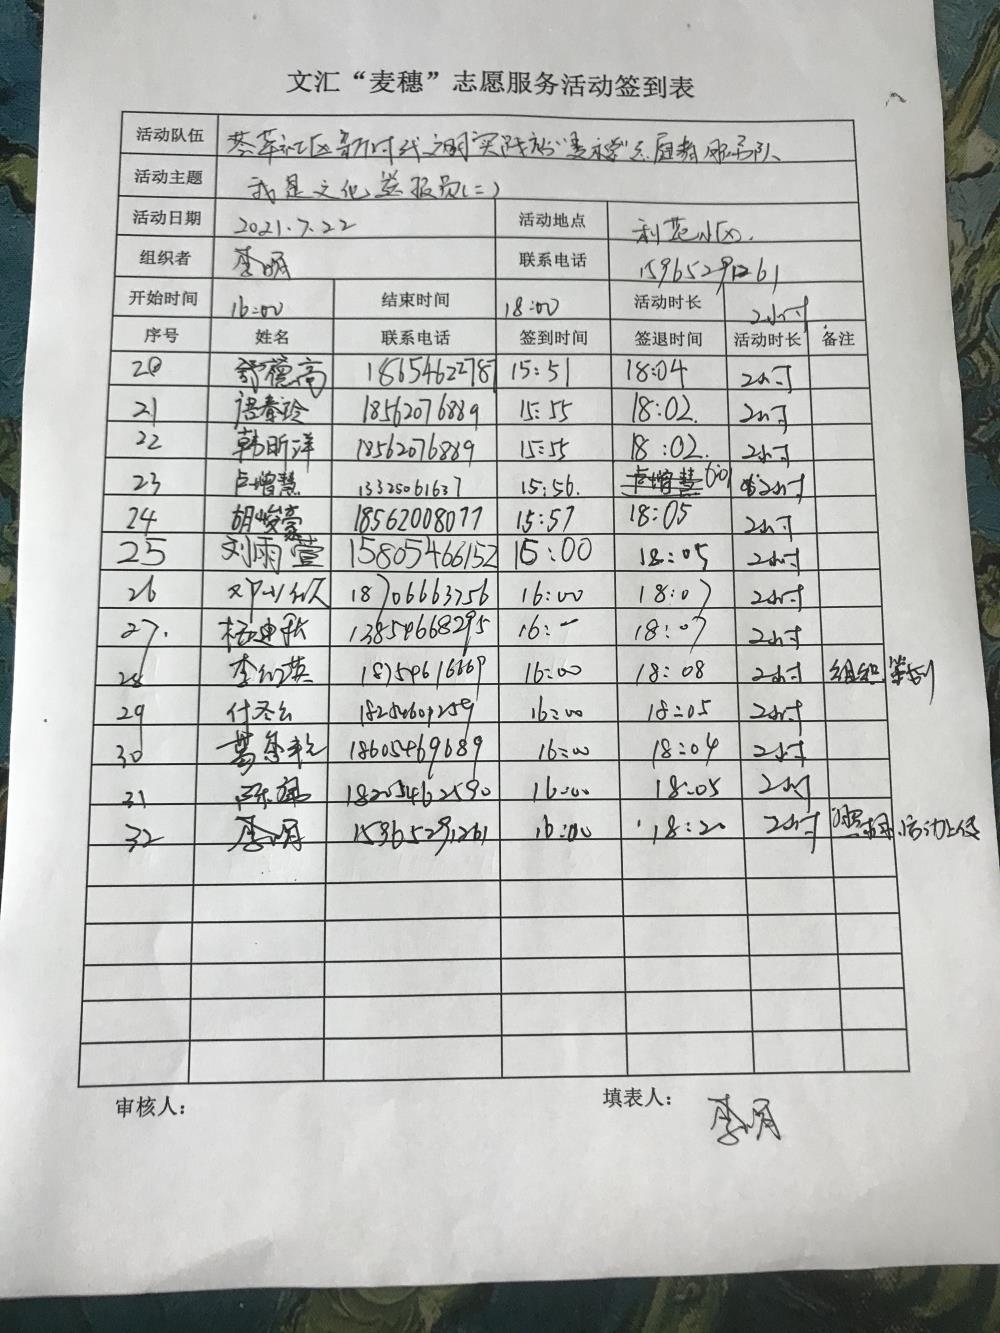 文汇“麦穗”志愿服务活动签到表
活动队伍 荟萃社区新时代文明实践站“麦穗”志愿者服务队
活动主题 我是文化
活动日期 2021.7.22 活动地点 利苑小区.
组织者 李明 联系电话 15965291261
开始时间 16:00 结束时间 18:00 活动时长 2小时
序号 姓名 联系电话 签到时间 签退时间 活动时长 备注
20 舒蓓高 18654622787 15:51 18:04 2小时
21 18562076889 15:55 18:02. 2小时
22 韩昕洋 18562076889 15:55 18:02. 2小时
23 卢增慧 13325061637 15:56. 卢增慧 2小时
24 胡峻豪 18562008077 15:57 18:05 2小时
25 刘雨萱 15805466152 16:00 18:05 2小时
26 邓 18706663756 16:00 18:07 2小时
27. 杨建 13854668295 16: 18:07 2小时
28 李红英 18754616669 16:00 18:08 2小时 组织签到
29 付圣 18254601259 16:00 18:05 2小时
30 葛 18605469689 16:00 18:04 2小时
31 陈 18205462590 16:00 18:05 2小时
32 李明 15965291261 16:00 18:20 2小时 照相、活动上传
审核人: 填表人: 李明